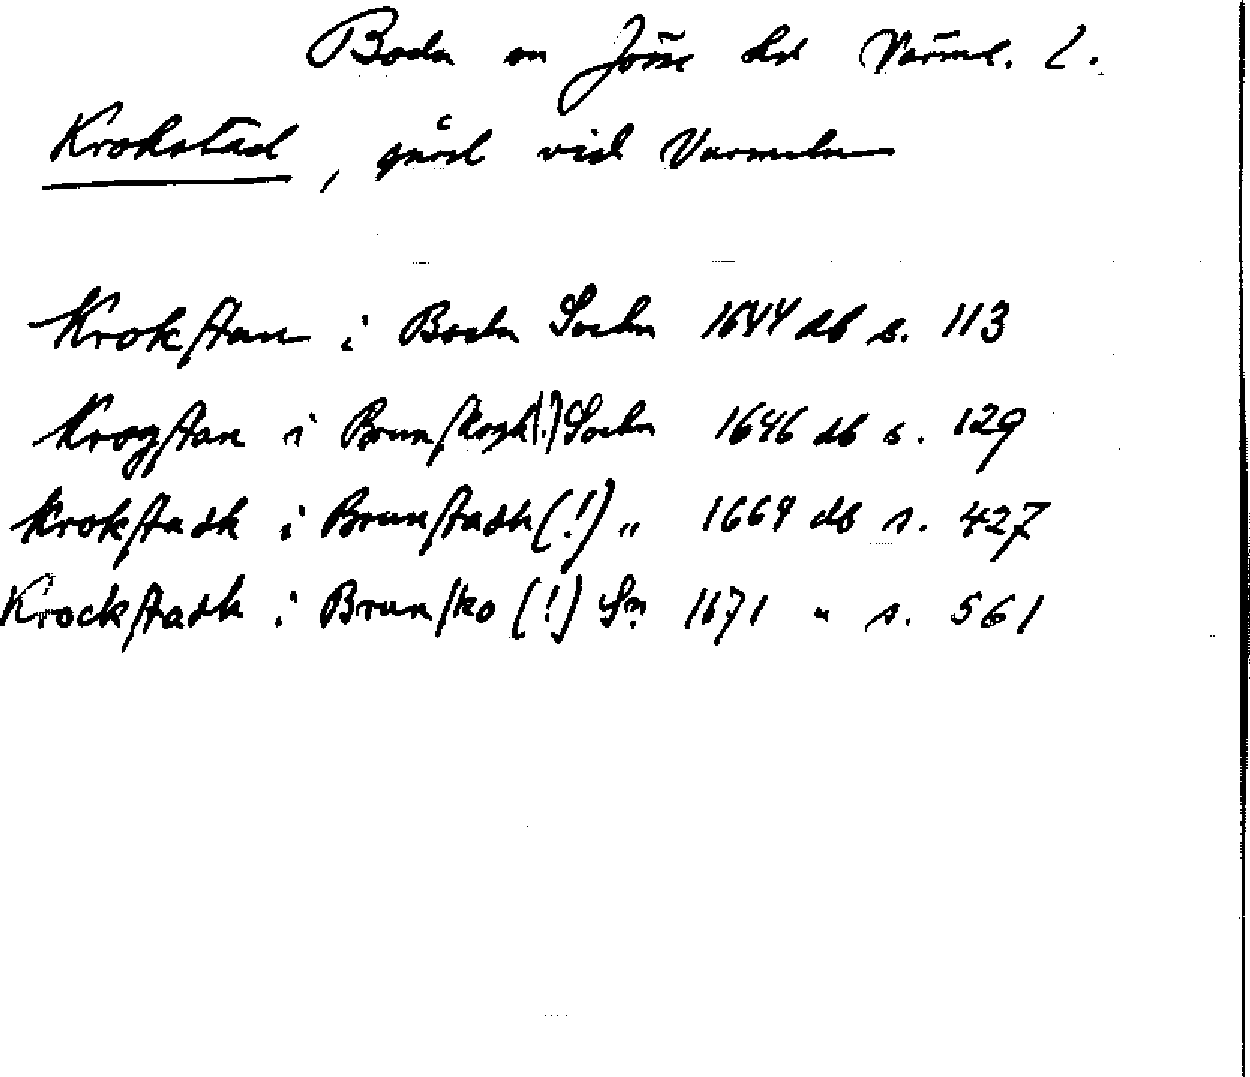 Boda sn Jösse hd Värml. l.
Krokstad, gård vid Värmeln
Krokstan i Boda Sochn 1644 db s. 113
Krogstan i Brunskogh(!) Sochn 1646 db s. 129
Krokstadh i Brunstadh (!) " 1669 db s. 427
Krockstadh i Brunsko (!) Sn 1671 " s. 561